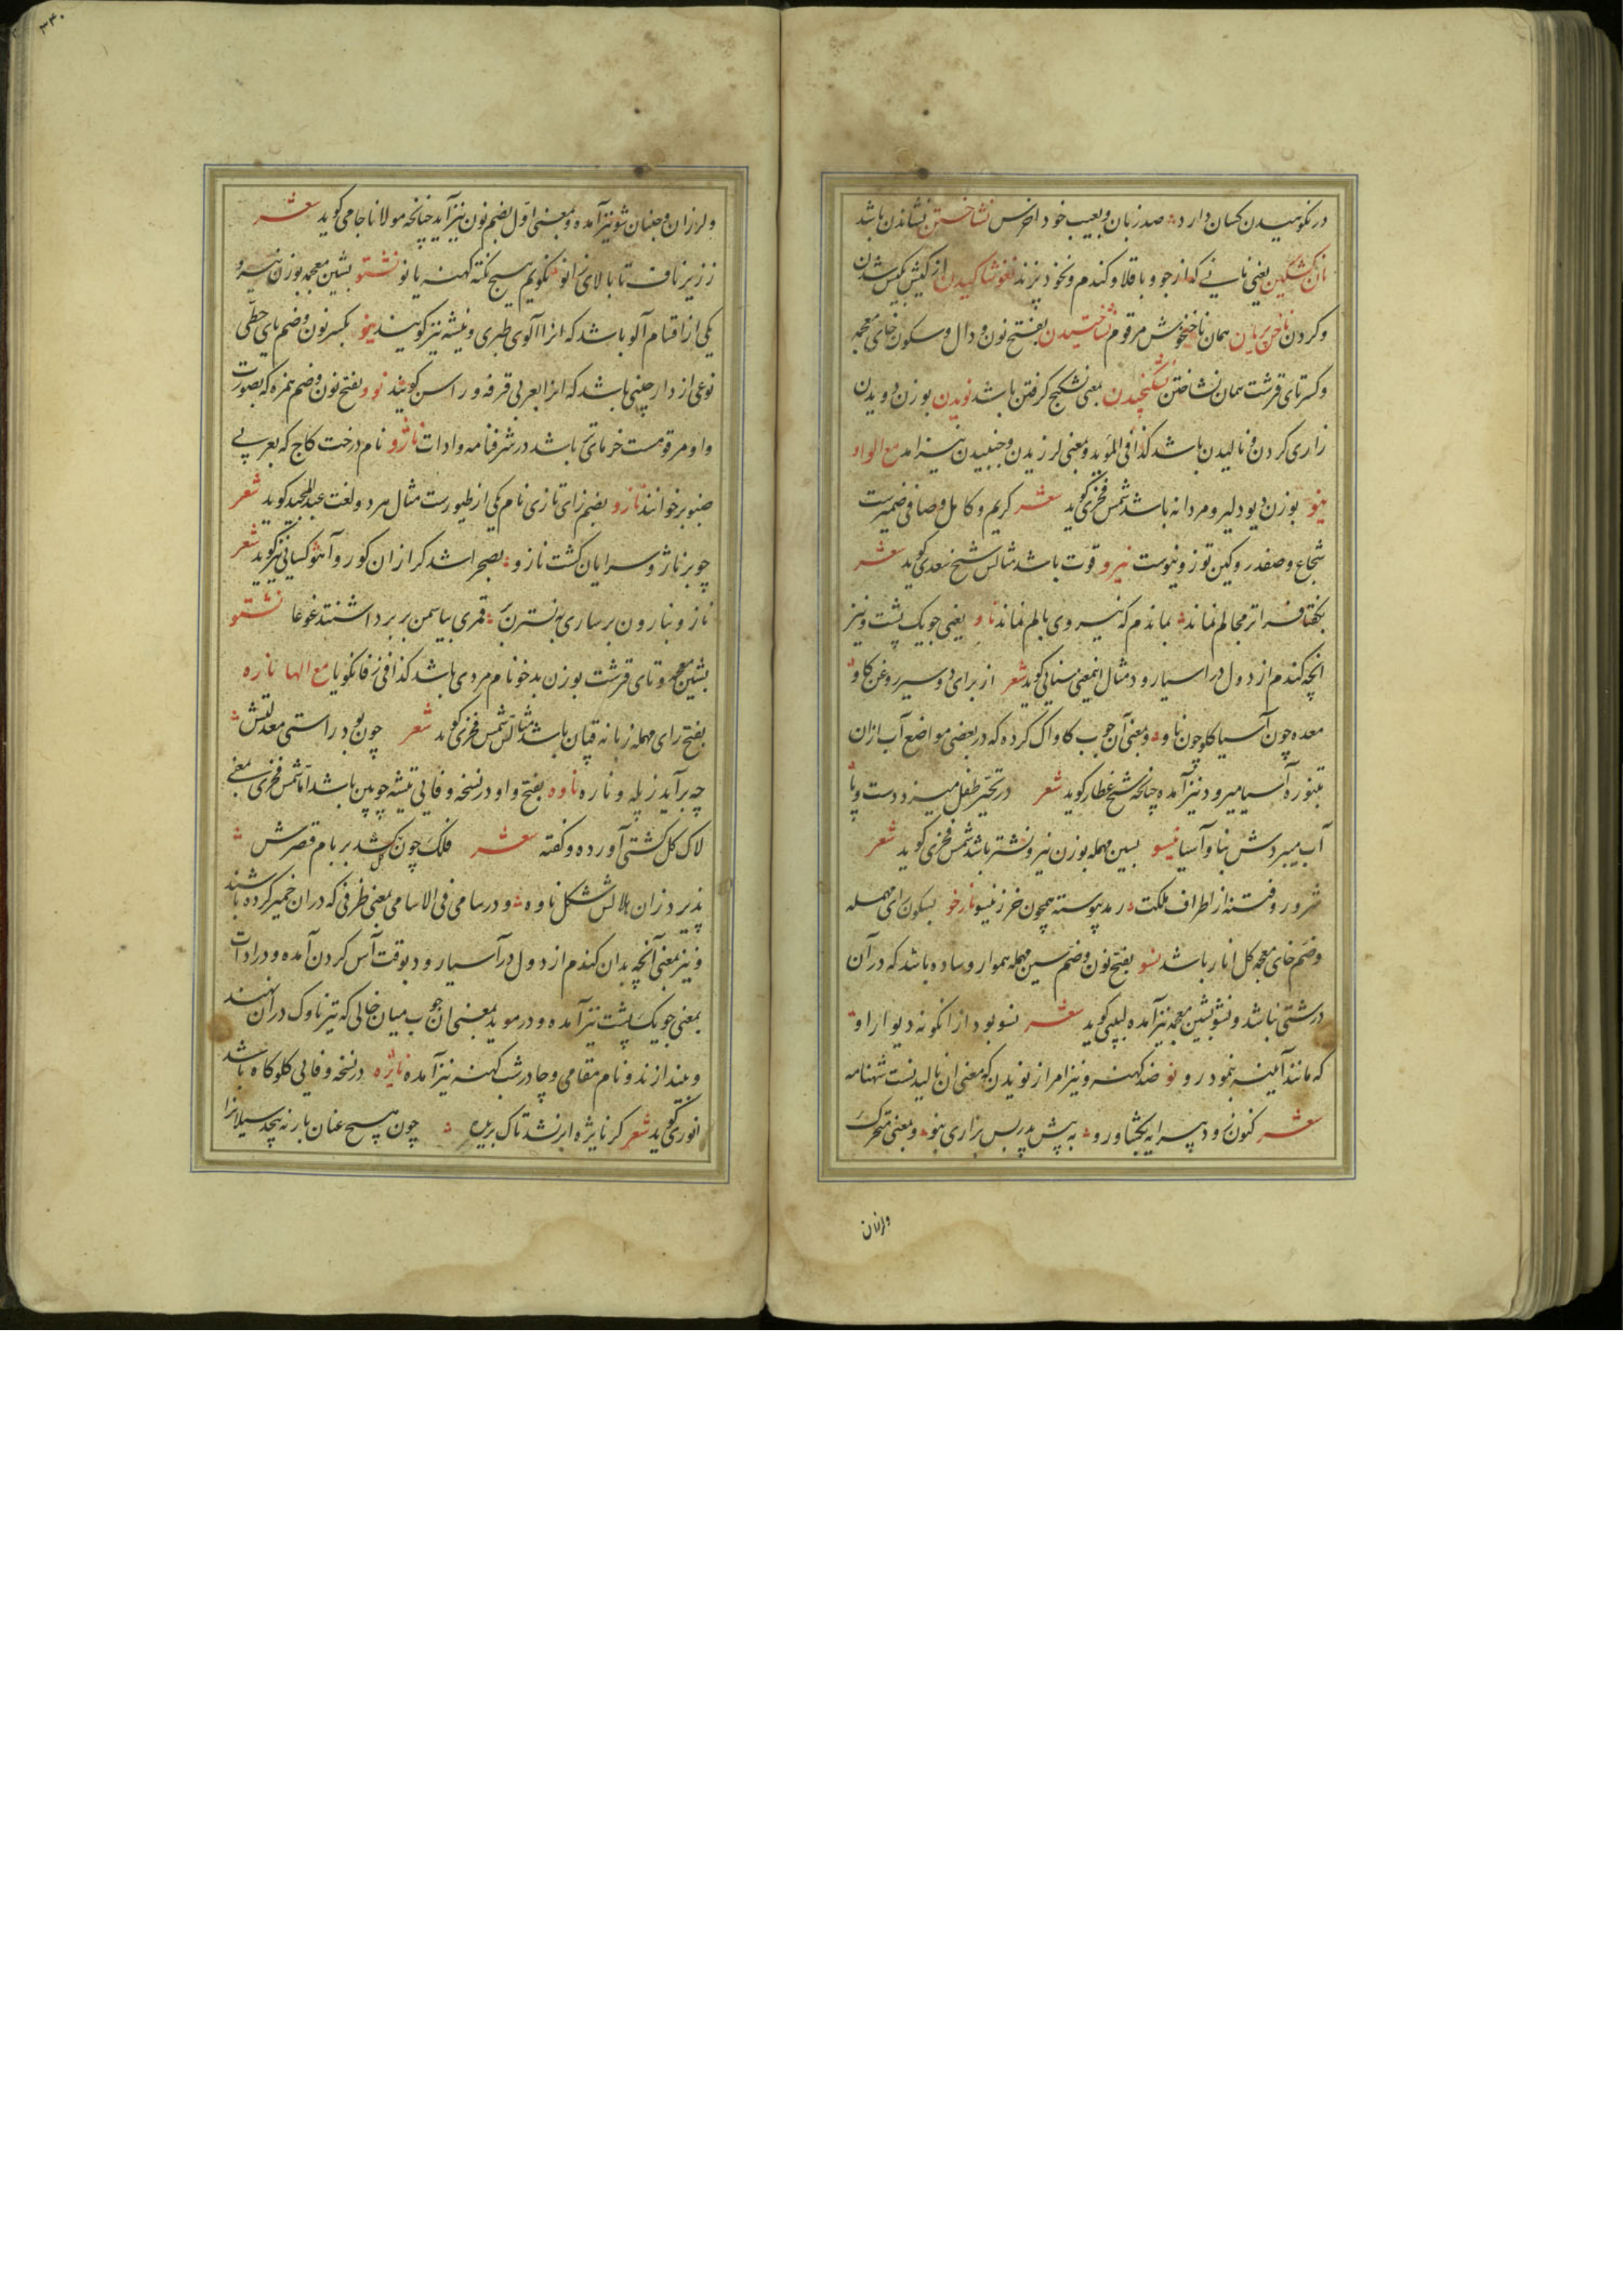 در نکوهیدن کسان دارد صد زبان و بعیب خود اخرس نشاختن نشاندن باشد
نان کشکین یعنی نانی که از جو و باقلا و کندم و نخود پزند نغوشاکیدن از کیش بکیش شدن
و کردن ناخن بریان همان ناخنخوش مرقوم نشاختیدن بفتح نون و دال و سکون خای معجمه
و کسر تای قرشت همان نشاختن نشکنجیدن بمعنی نشکنج کرفتن باشد نویدن بوزن دویدن
زاری کردن و نالیدن باشد کذا فی المؤید و بمعنی لرزیدن و جنبیدن نیز امد مع الواو
نیو بوزن دیو دلیر و مردانه باشد شمس فخری کوید شعر کریم و کامل و صافی ضمیرست
شجاع و صفدر و کین توز و نیوست نیرو قوت باشد مثالش شیخ سعدی کوید شعر
بکفتا فراتر مجالم نماند بماندم که نیروی بالم نماند ناو یعنی جویک پشت و نیز
انچه کندم از دول در اسیا رود مثال اینمعنی سنایی کوید شعر از برای دو سیر روغن کاو
معده چون آسیا کلو چون ناو و بمعنی آن چوب کاواک کرده که در بعضی مواضع آب ازان
بتنوره آسیا میرود نیز آمده چنانچه شیخ عطار کوید شعر در تحیر طفل میزد دست و پا
آب میبردش بناو آسیا نیسو بسین مهمله بوزن نیرو نشتر باشد شمس فخری کوید شعر
شرور و فتنه از اطراف ملکت رمد پیوسته همچون خر ز نیسو نارخو بسکون رای مهمله
و ضم خای معجمه کل انار باشد نسو بفتح نون و ضم سین مهمله هموار و ساده باشد که در آن
درشتی نباشد و نشو بشین معجمه نیز آمده لبیبی کوید شعر نسو بود از انکونه دیوار او
که مانند آیینه بنمود رو نو ضد کهنه و نیز امر از نویدن که بمعنی ان نالیدنست شهنامه
شعر کنون زود پیرایه بکشا و رو به پیش پدر بس بزاری بنو و بمعنی متحرک
و لرزان
ولرزان و جنبان شو نیز آمده و بمعنی اول بضم نون نیز آید چنانچه مولانا جامی کوید شعر
ز زیر ناف تا بالای زانو نکویم هیچ نکته کهنه یا نو نشتو بشین معجمه بوزن نیرو
یکی از اقسام آلو باشد که انرا آلوی طبری و نیشه نیز کویند نیو بکسر نون و ضم یای حطی
نوعی از دارچینی باشد که انرا بعربی قرفه و راسن کویند نوو بفتح نون و ضم همزه که بصورت
واو مرقومست خرمای تر باشد در شرفنامه و ادات ناژو نام درخت کاج که بعربی
صنوبر خوانند نازو بضم زای تازی نام یکی از طیورست مثال هر دو لغت عبدالمجید کوید شعر
چو بر ناژو سرایان کشت نازو بصحرا شد کرازان کور و آهو کسایی نیز کوید شعر
نازو بنارون بر ساری به نسترن بر قمری بیاسمن بر برداشتند غوغا نشتو
بشین معجمه و تای قرشت بوزن بدخو نام مردی باشد کذا فی زفانکویا مع الها ناره
بفتح رای مهمله زبانه قپان باشد مثالش شمس فخری کوید شعر چون بود راستی معدلتش
چه برآید ز پله و ناره ناوه بفتح واو در نسخه وفایی تیشه چوبین باشد اما شمس فخری بمعنی
لاک کل کشتی آورده و کفته شعر فلک چون کل کشد بر بام قصرش
پذیرد زان هلالش شکل ناوه و در سامی فی الاسامی بمعنی ظرفی که دران خمیر کرده باشند
و نیز بمعنی آنچه بدان کندم از دول در آسیا رود بوقت آس کردن آمده و در ادات
بمعنی جویک پشت نیز آمده و در موید بمعنی ان چوب میان خالی که تیر ناوک دران نهند
و بیندازند و نام مقامی و چادرشب کهنه نیز آمده نایژه در نسخه وفایی کلو کاه باشد
انوری کوید شعر کر نایژه ابر نشد تاک بریده چون هیچ عنان باز نه پیچد سیلانرا